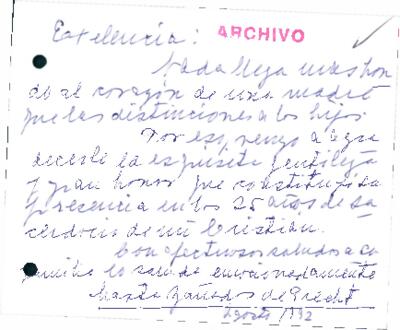 Excelencia: ARCHIVO
Nada llega mas hon
do al corazón de una madre
que las distinciones a los hijos
Por eso, vengo a agra
decerle la exquisita gentileza
y gran honor que constituyó su
presencia en los 25 años de sa
cerdocio de mi Cristián.
Con afectuosos saludos a Ca
lo saluda emocionadamente
Marta Bañados de Precht
Agosto/992